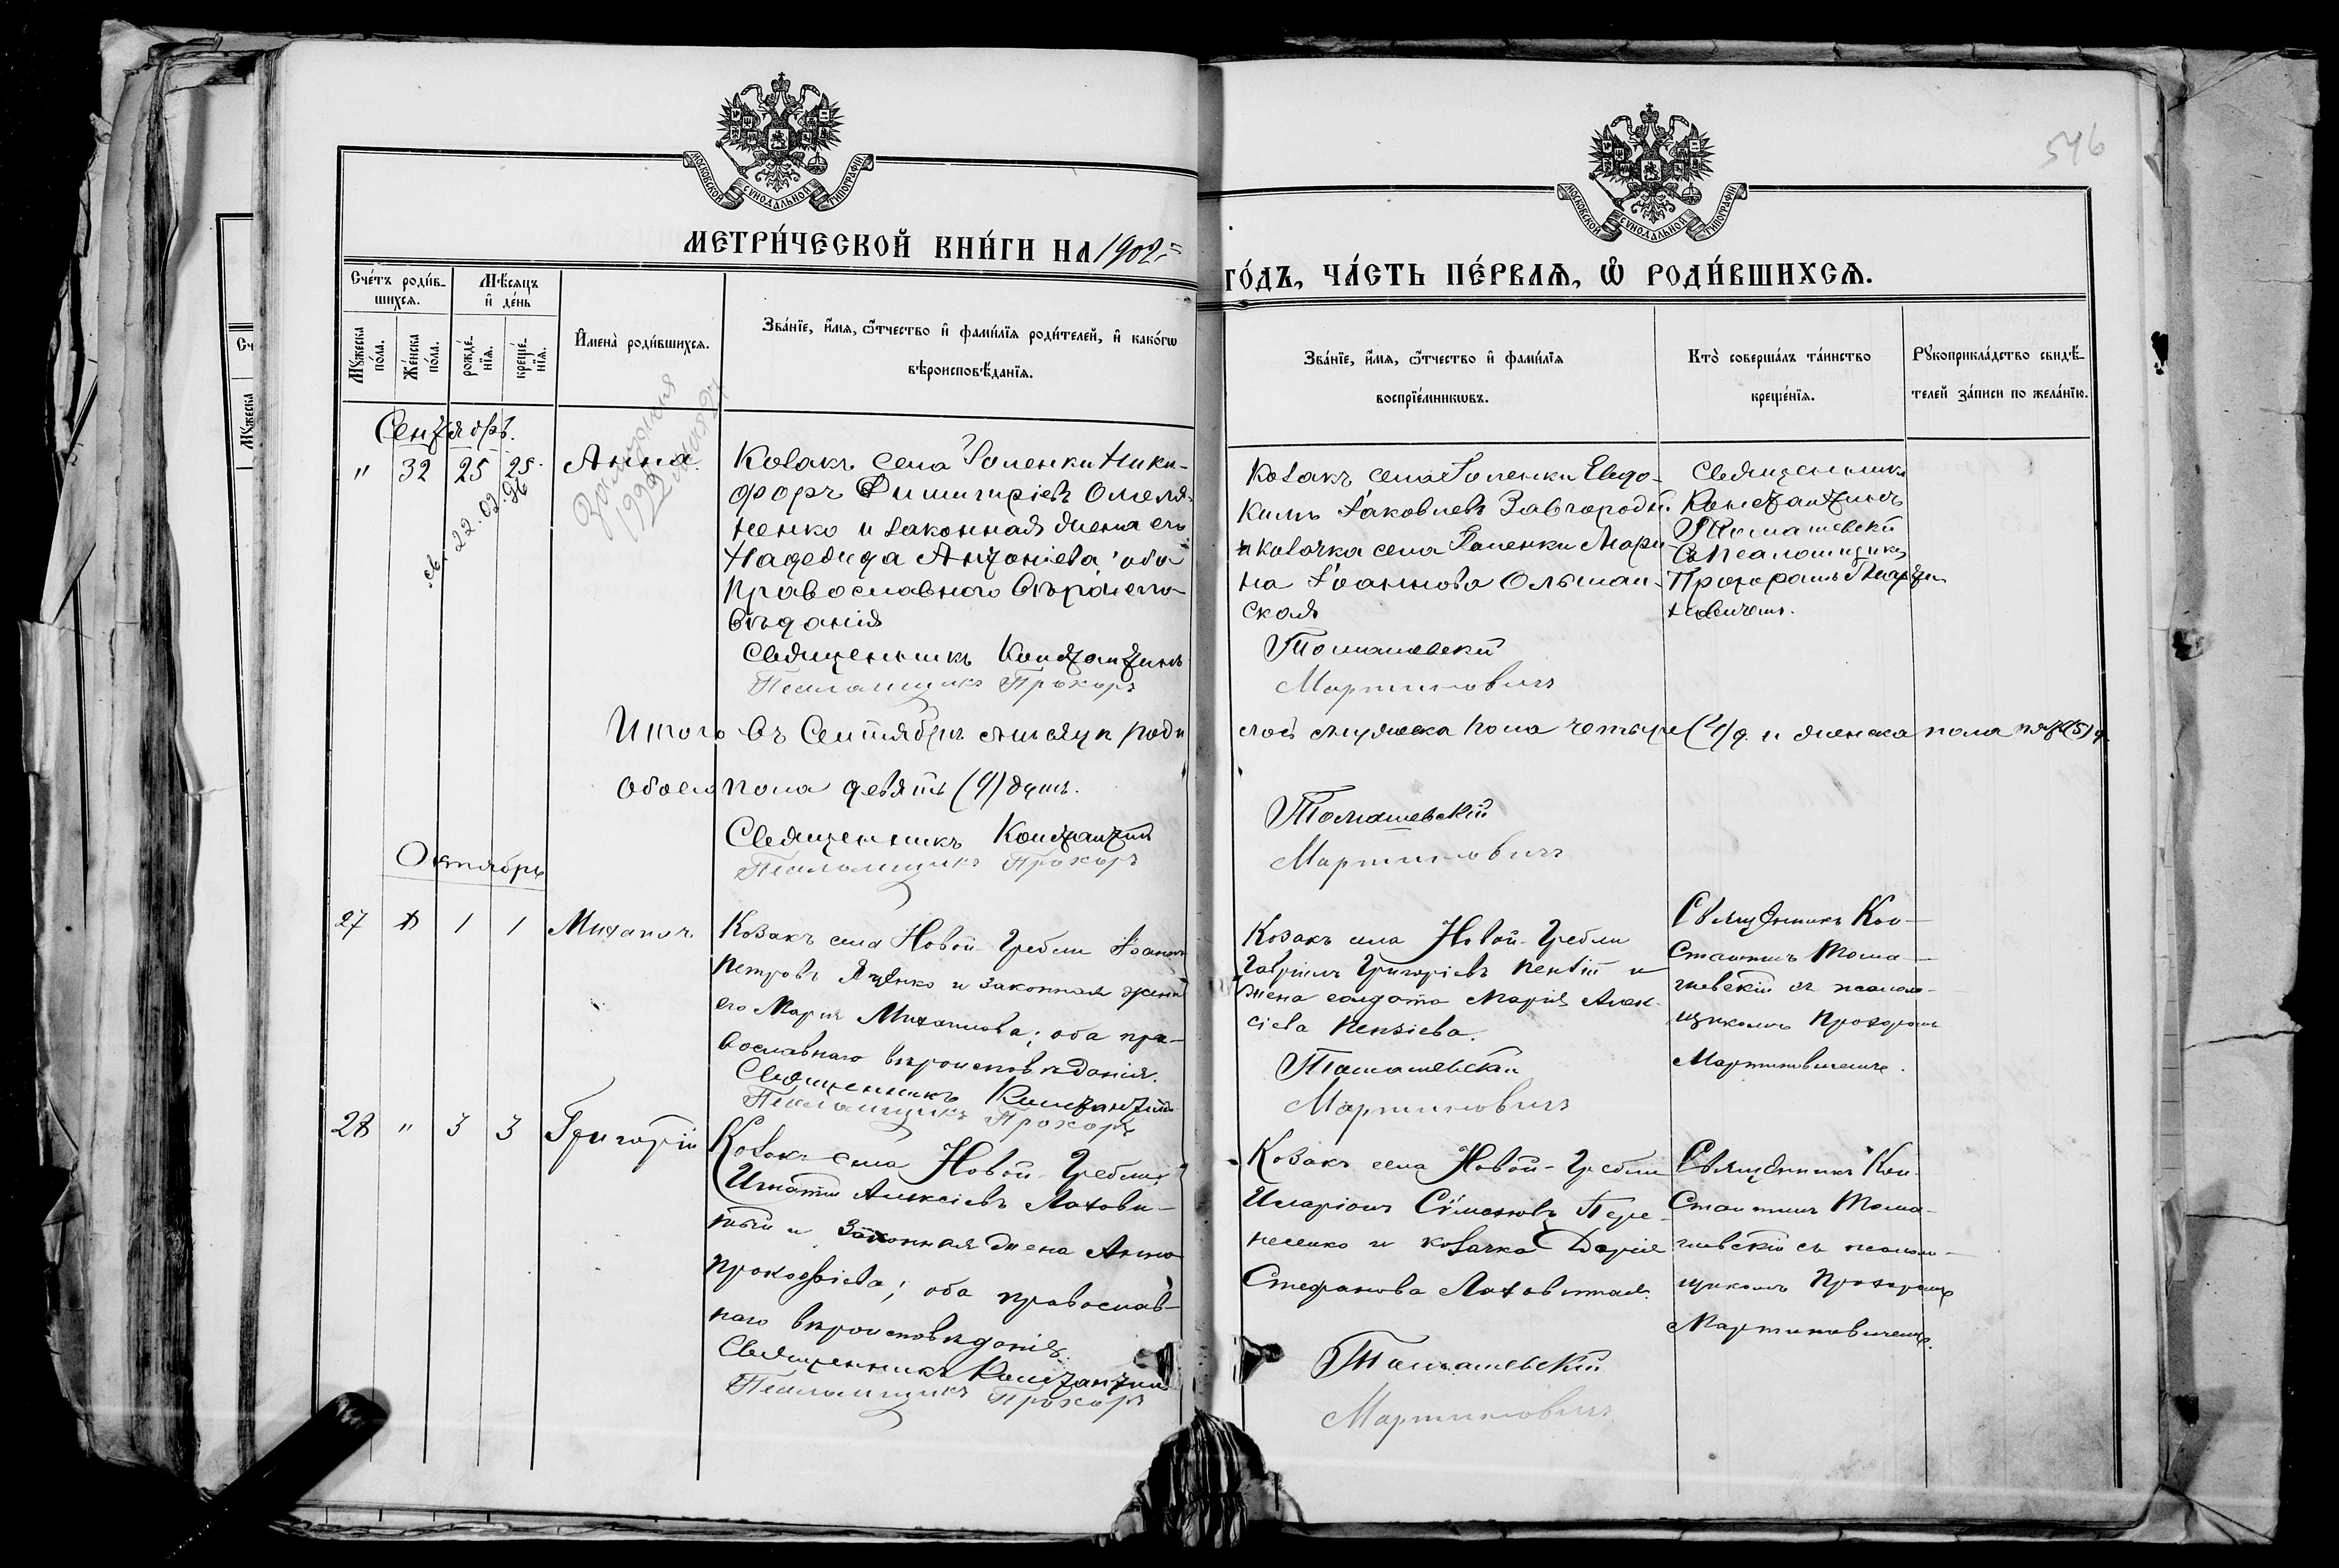 546
МОСКОВСКОЙ СѴНОДАЛЬНОЙ ТИПОГРАФІИ
МОСКОВСКОЙ СѴНОДАЛЬНОЙ ТИПОГРАФІИ
МЕТРИ́ЧЕСКОЙ КНИ́ГИ НА 1902 г.
ГО́ДЪ, ЧА́СТЬ ПЕ́РВАЯ, Ѡ РОДИ́ВШИХСЯ.
Сче́тъ роди́в-
шихся.
Мѣ́сяцъ
и де́нь
Му́жеска
по́ла.
Же́нска
по́ла.
рожде́-
нїя.
креще́-
нїя.
Имена̀ роди́вшихся.
Зва́нїе, и́мя, ѻ́тчество и фами́лїя роди́телей, и како́гѡ
вѣроисповѣ́данїя.
Зва́нїе, и́мя, ѻ́тчество и фами́лїя
воспрїе́мникѡвъ.
Кто̀ соверша́лъ та́инство
креще́нїя.
Рукоприкла́дство свидѣ́-
телей за́писи по жела́нїю.
Сентябрь.
" 32 25 25. Анна.
св. 22. 02.
Козакъ села Ники-
форъ Димитріевъ Омеля-
ненко и законная жена его
Надежда Антоніева; оба
православного вѣроиспо-
вѣданія
Священникъ Константинъ
Псаломщикъ Прохоръ
Козакъ села Евдо-
кимъ Іаковлевъ Завгородній
и козачка села Мари-
на Іоаннова Ольшан-
ская
Томашевскій
Мартиновичъ
Священникъ
Константинъ
Томашевскій
съ псаломщикомъ
Прохоромъ Марти-
новичемъ.
Итого въ Сентябрѣ мѣсяцѣ роди
лось мужеска пола четыре (4) д. и женска пола пять (5) д.
обоего пола девять (9) душъ.
Священникъ Константинъ
Псаломщикъ Прохоръ
Томашевскій
Мартиновичъ
Октябрь
27 " 1 1 Михаилъ
Козакъ села Новой-Гребли Іоаннъ
Петровъ Яценко и законная жена
его Марія Михаилова; оба пра-
вославнаго вѣроисповѣданія.
Священникъ Константинъ
Псаломщикъ Прохоръ
Козакъ села Новой-Гребли
Гавріилъ Григоріевъ и
жена солдата Марія Алек-
сіева
Томашевскій
Мартиновичъ
Священникъ Кон-
стантинъ Тома-
шевскій съ псалом-
щикомъ Прохоромъ
Мартиновичемъ.
28 " 3 3 Григорій
Козакъ села Новой-Гребли
Игнатій Алексіевъ Лахови-
тый и законная жена Анна
Прокофіева; оба православ-
наго вѣроисповѣданія.
Священникъ Константинъ
Псаломщикъ Прохоръ
Козакъ села Новой-Гребли
Иларіонъ Сѵмеоновъ
и козачка Дарія
Стефанова
Томашевскій
Мартиновичъ
Священникъ Кон-
стантинъ Тома-
шевскій съ псалом-
щикомъ Прохоромъ
Мартиновичемъ.